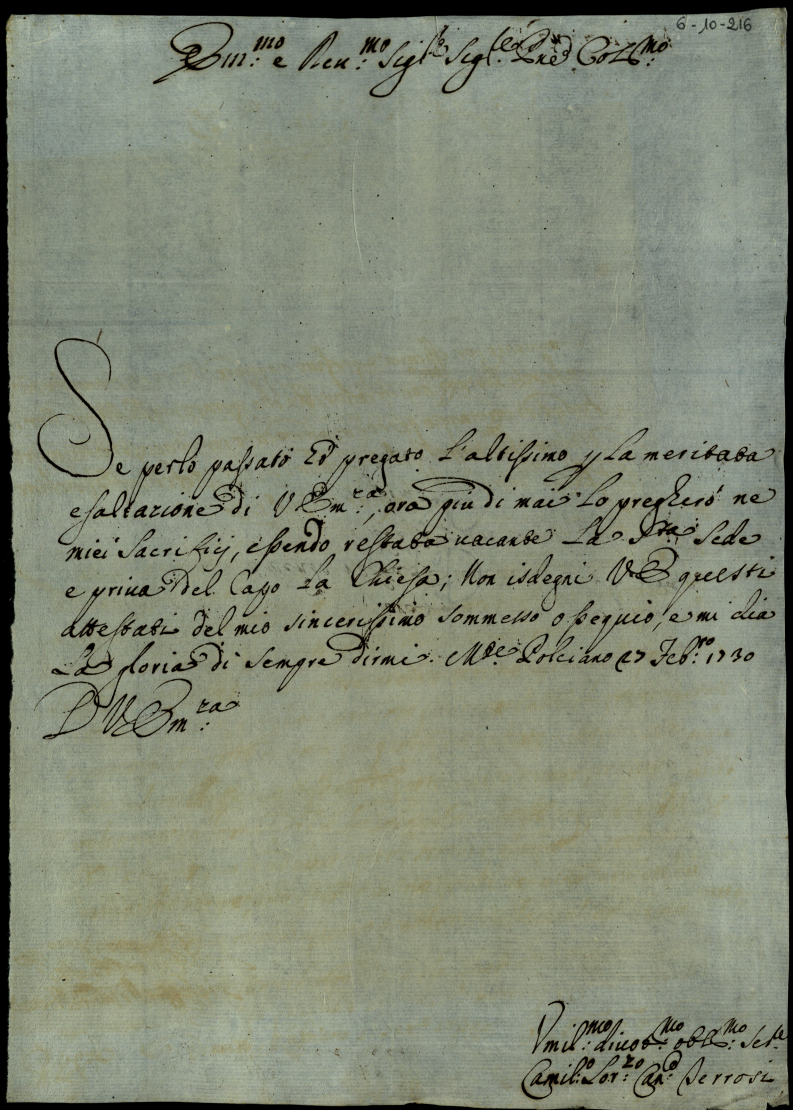 6-10-216
Em:mo e Reu:mo Sigre Sigre Pne Col:mo
Se perlo passato hò pregato L'altissimo p La meritata
esaltazione di V Em:za, ora piu di mai Lo pregherò ne
miei Sacrificij, essendo restata uacante La Sta Sede
e priua del Capo La Chiesa; Non isdegni VE questi
attestati del mio sincerissimo sommesso ossequio, e mi dia
La gloria di sempre dirmi. Mte Polciano 27 Feb:ro 1730
D V Em:za
Vmil:mo diuot:mo obb:mo Ser:re
Camil:o Lor:zo Can:co Perrosi